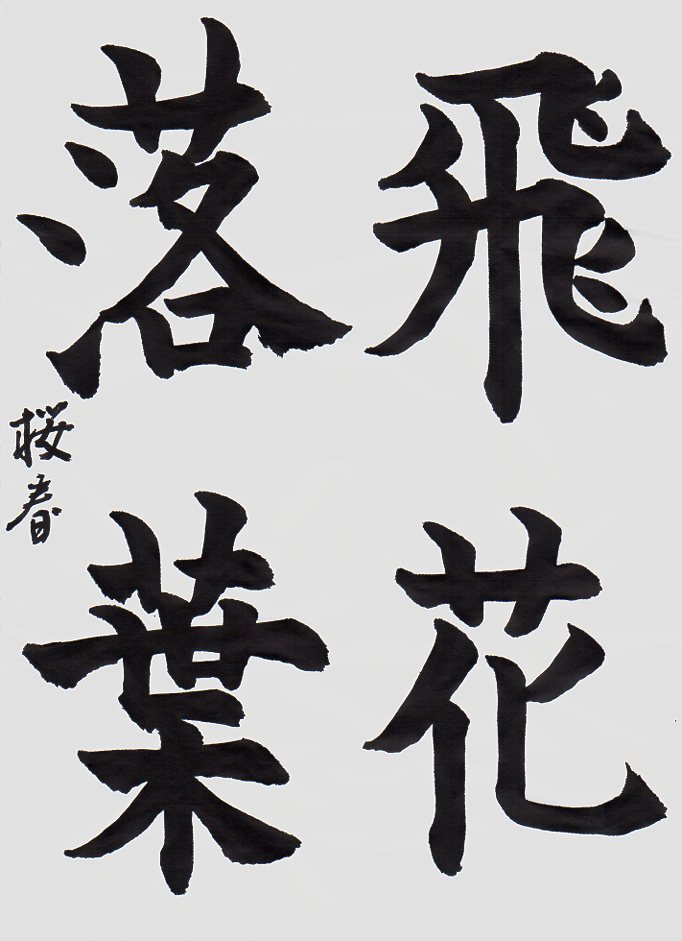 飛花
落葉
桜春